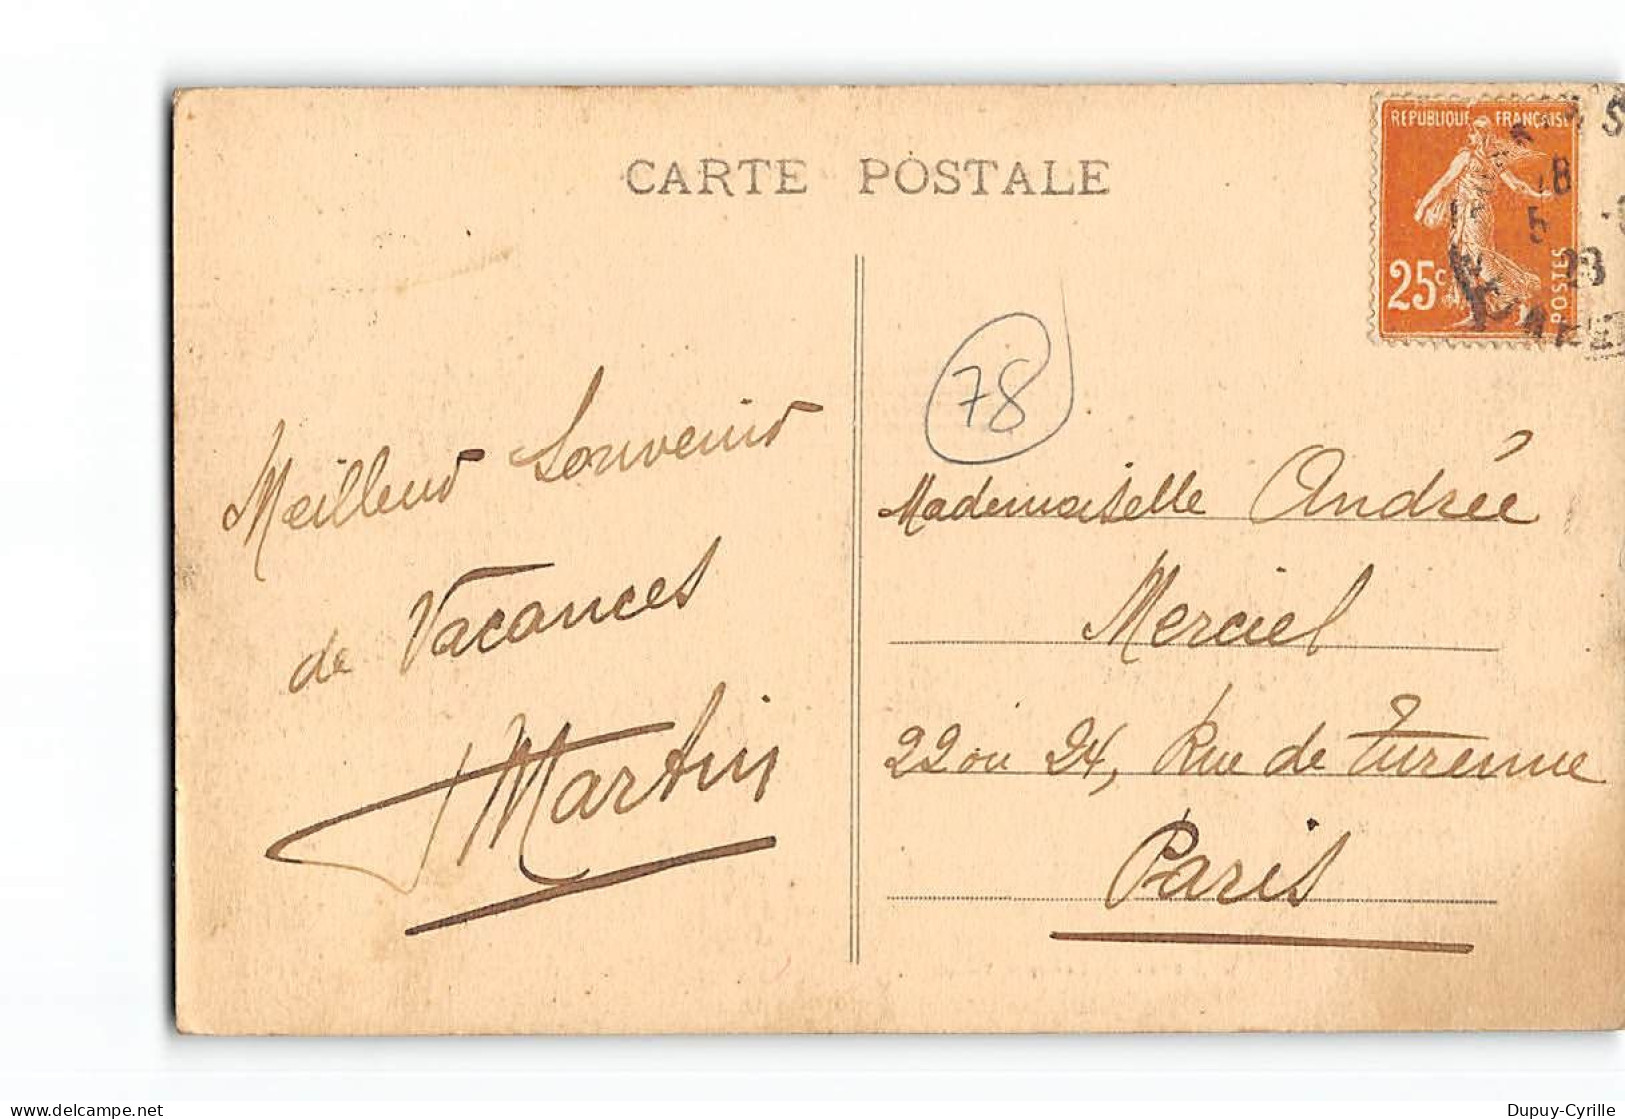 CARTE POSTALE
REPUBLIQUE FRANÇAISE
25c
POSTES
78
Meilleurs Souvenirs
de Vacances
Martin
Mademoiselle Andrée
Merciel
22 ou 24, Rue de Turenne
Paris
delcampe.net
Dupuy-Cyrille